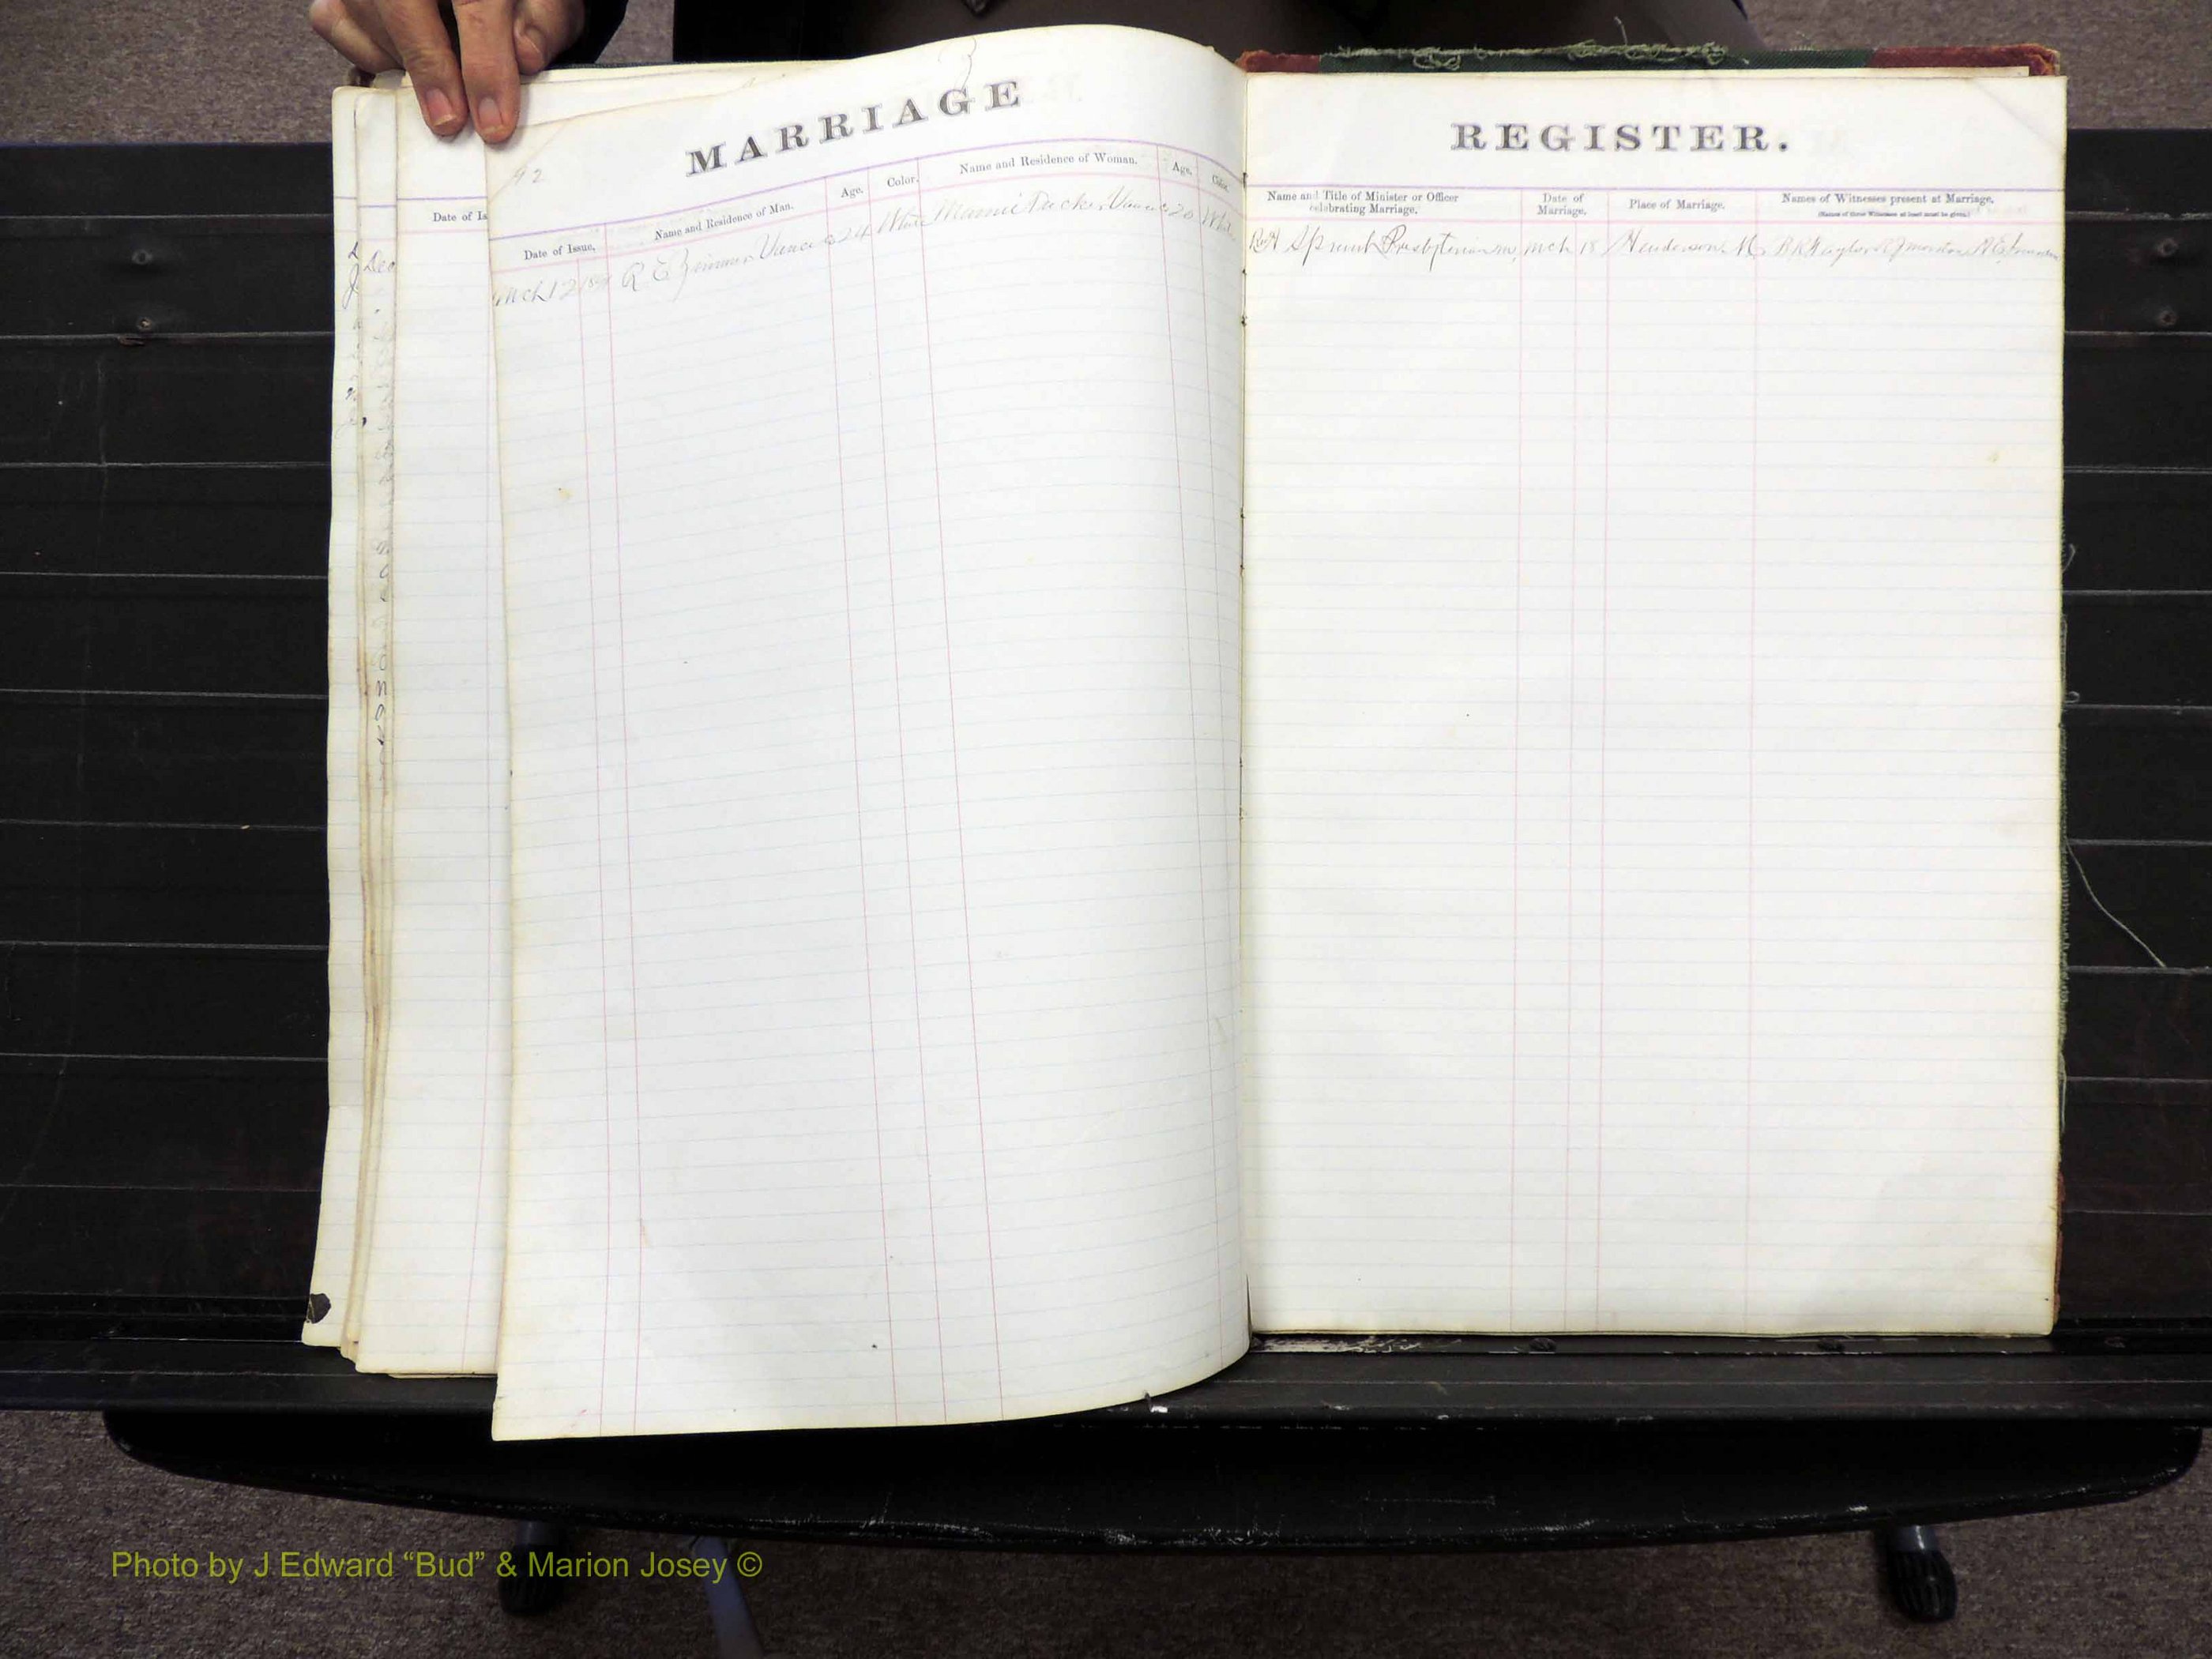 MARRIAGE
92
Date of Issue,
Name and Residence of Man.
Age.
Color.
Name and Residence of Woman.
Age,
Color.
Mch 12 R E Zimmer Vance 24 White Mamie Tucker Vance 20 White
REGISTER.
Name and Title of Minister or Officer
celebrating Marriage.
Date of
Marriage,
Place of Marriage.
Names of Witnesses present at Marriage,
(Names of three Witnesses at least must be given.)
Sprunt Presbyterian mch 18 Henderson
Date of Is
Dec
Photo by J Edward “Bud” & Marion Josey ©